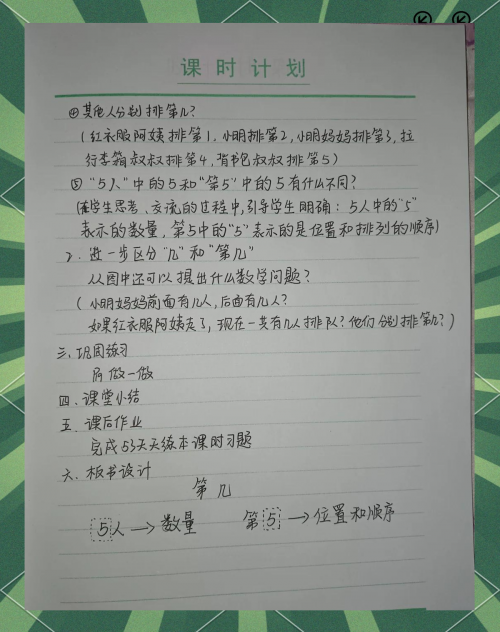 课时计划
④其他人分别排第几?
(红衣服阿姨排第1,小明排第2,小明妈妈排第3,拉
行李箱叔叔排第4,背书包叔叔排第5)
⑤"5人"中的5和"第5"中的5有什么不同?
(在学生思考、交流的过程中,引导学生明确:5人中的"5"
表示的数量,第5中的"5"表示的是位置和排列的顺序)
2.进一步区分"几"和"第几"
从图中还可以提出什么数学问题?
(小明妈妈前面有几人,后面有几人?
如果红衣服阿姨走了,现在一共有几人排队?他们分别排第几?)
三、巩固练习
做一做
四、课堂小结
五、课后作业
完成53天天练本课时习题
六、板书设计
第几
5人→数量 第5→位置和顺序